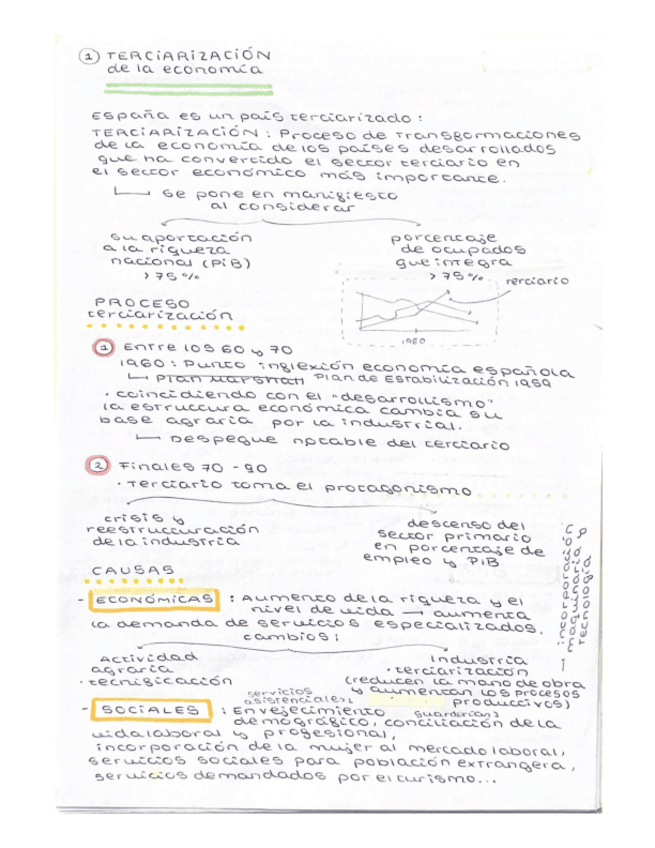 1 TERCIARIZACIÓN
de la economía
España es un país terciarizado:
TERCIARIZACIÓN: Proceso de transformaciones
de la economía de los países desarrollados
que ha convertido el sector terciario en
el sector económico más importante.
Se pone en manifiesto
al considerar
su aportación
a la riqueza
nacional (PiB)
> 75%
porcentaje
de ocupados
que integra
> 75%
terciario
1960
PROCESO
terciarización
1 Entre los 60 y 70
1960: Punto inflexión economía española
Plan Marshall Plan de Estabilización 1959
· coincidiendo con el "desarrollismo"
la estructura económica cambia su
base agraria por la industrial.
Despegue notable del terciario
2 Finales 70 - 90
· Terciario toma el protagonismo
crisis y
reestructuración
de la industria
descenso del
sector primario
en porcentaje de
empleo y PiB
CAUSAS
- ECONÓMICAS : Aumento de la riqueza y el
nivel de vida → aumenta
la demanda de servicios especializados.
cambios:
Actividad
agraria
· tecnificación
Industria
· terciarización
(reducen la mano de obra
y aumentan los procesos
productivos)
↑ incorporación
maquinaria y
tecnología
servicios
asistenciales
- SOCIALES : Envejecimiento guarderías
demográfico, conciliación de la
vida laboral y profesional,
incorporación de la mujer al mercado laboral,
servicios sociales para población extrangera,
servicios demandados por el turismo...